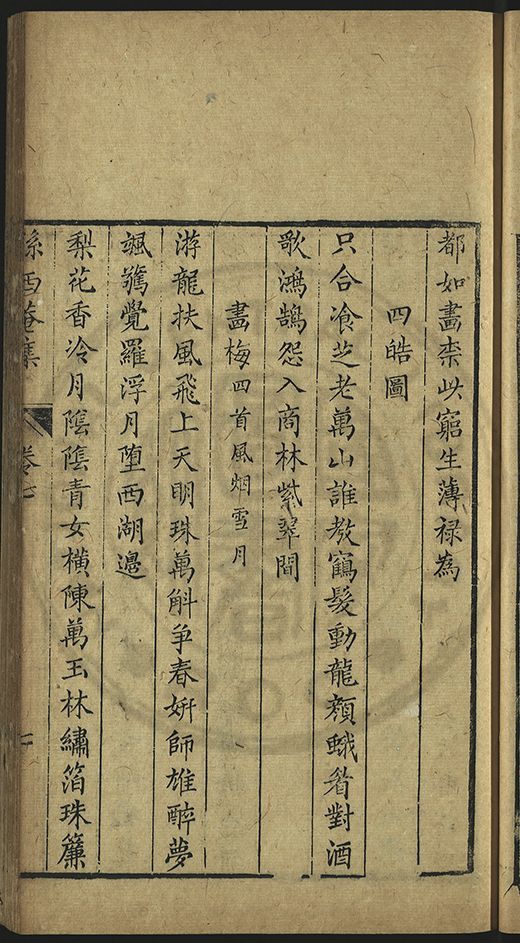 都如畫柰此窮生薄禄為
四皓圖
只合飡芝老萬山誰教鶴髮動龍顔蛾眉對酒
歌鴻鵠怨入商林紫翠間
畫梅四首風烟雪月
游龍扶風飛上天明珠萬斛争春妍師雄醉夢
颯驚覺羅浮月堕西湖邉
梨花香冷月隂隂青女横陳萬玉林繡箔珠簾
孫西菴集 卷七